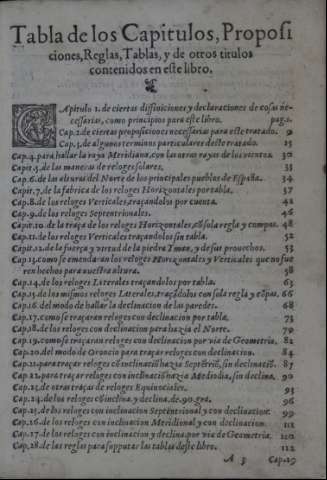 Tabla de los Capitulos, Proposi
ciones, Reglas, Tablas, y de otros titulos
contenidos en este libro.
CApitulo 1. de ciertas diffiniciones y declaraciones de cosas ne-
cessarias, como principios para este libro. pag.1.
Cap.2. de ciertas proposiciones necessarias para este tratado. 9
Cap.3. de algunos terminos particulares deste tratado. 25
Cap.4. para hallar la raya Meridiana, con las otras rayas de los vientos. 30
Capit.5. de las maneras de reloges solares. 33
Cap.6. de las alturas del Norte de los principales pueblos de España. 34
Capit.7. de la fabrica de los reloges Horizontales por tabla. 37
Cap.8. de los reloges Verticales, traçandolos por cuenta. 42
Cap.9. de los reloges Septentrionales. 46
Capit.10. de la traça de los reloges Horizontales, cõ sola regla y compas. 48
Cap.11. de los reloges Verticales traçandolos sin tabla. 52
Capit.12. de la fuerça y virtud de la piedra Iman, y de sus prouechos. 53
Cap.13. como se emendaran los reloges Horizontales y Verticales que no fue
ren hechos para nuestra altura. 58
Cap.14. de los reloges Laterales traçandolos por tabla. 63
Cap.15. de los mismos reloges Laterales, traçãdolos con sola regla y cõpas. 66
Cap.16. del modo de hallar la declinacion de las paredes. 68
Cap.17. como se traçaran reloges con declinacion por tabla. 73
Cap.18. de los reloges con declinacion para hazia el Norte. 79
Cap.19. como se traçaran reloges con declinacion por via de Geometria. 82
Cap.20. del modo de Oroncio para traçar reloges con declinacion. 84
Cap.21. para traçar reloges cõ inclinaciõ hazia Septẽtriõ, sin declinaciõ. 87
Cap.22. para traçar reloges con inclinaciõ hazia Mediodia, sin declina. 90
Cap.23. de otras traças de reloges Equinociales. 93
Cap.24. de los reloges cõ inclina. y declina. de .90. gra. 96
Cap.25. de los reloges con inclinacion Septentrional y con declinacion. 99
Cap.26. de los reloges con inclinacion Meridional y con declinacion. 110
Cap.27. de los reloges con inclinacion y declina. por via de Geometria. 110
Cap.28. de las reglas para supputar las tablas deste libro. 112
A 3 Cap.29